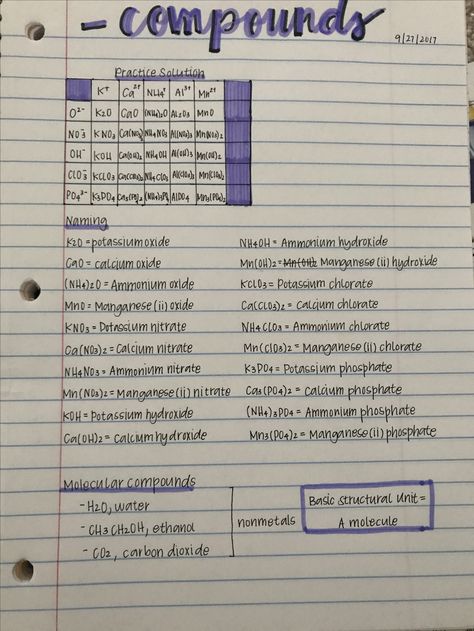 - compounds
9/27/2017
Practice Solution
K⁺ Ca²⁺ NH₄⁺ Al³⁺ Mn²⁺
O²⁻ K₂O CaO (NH₄)₂O Al₂O₃ MnO
NO₃⁻ KNO₃ Ca(NO₃)₂ NH₄NO₃ Al(NO₃)₃ Mn(NO₃)₂
OH⁻ KOH Ca(OH)₂ NH₄OH Al(OH)₃ Mn(OH)₂
ClO₃⁻ KClO₃ Ca(ClO₃)₂ NH₄ClO₃ Al(ClO₃)₃ Mn(ClO₃)₂
PO₄³⁻ K₃PO₄ Ca₃(PO₄)₂ (NH₄)₃PO₄ AlPO₄ Mn₃(PO₄)₂
Naming
K₂O = potassium oxide
CaO = calcium oxide
(NH₄)₂O = Ammonium oxide
MnO = Manganese (ii) oxide
KNO₃ = Potassium nitrate
Ca(NO₃)₂ = Calcium nitrate
NH₄NO₃ = Ammonium nitrate
Mn(NO₃)₂ = Manganese (ii) nitrate
KOH = Potassium hydroxide
Ca(OH)₂ = Calcium hydroxide
NH₄OH = Ammonium hydroxide
Mn(OH)₂ = Mn(OH)₂ Manganese (ii) hydroxide
KClO₃ = Potassium chlorate
Ca(ClO₃)₂ = Calcium chlorate
NH₄ClO₃ = Ammonium chlorate
Mn(ClO₃)₂ = Manganese (ii) chlorate
K₃PO₄ = Potassium phosphate
Ca₃(PO₄)₂ = Calcium phosphate
(NH₄)₃PO₄ = Ammonium phosphate
Mn₃(PO₄)₂ = Manganese (ii) phosphate
Molecular compounds
- H₂O, water
- CH₃CH₂OH, ethanol
- CO₂, carbon dioxide
nonmetals
Basic structural Unit =
A molecule